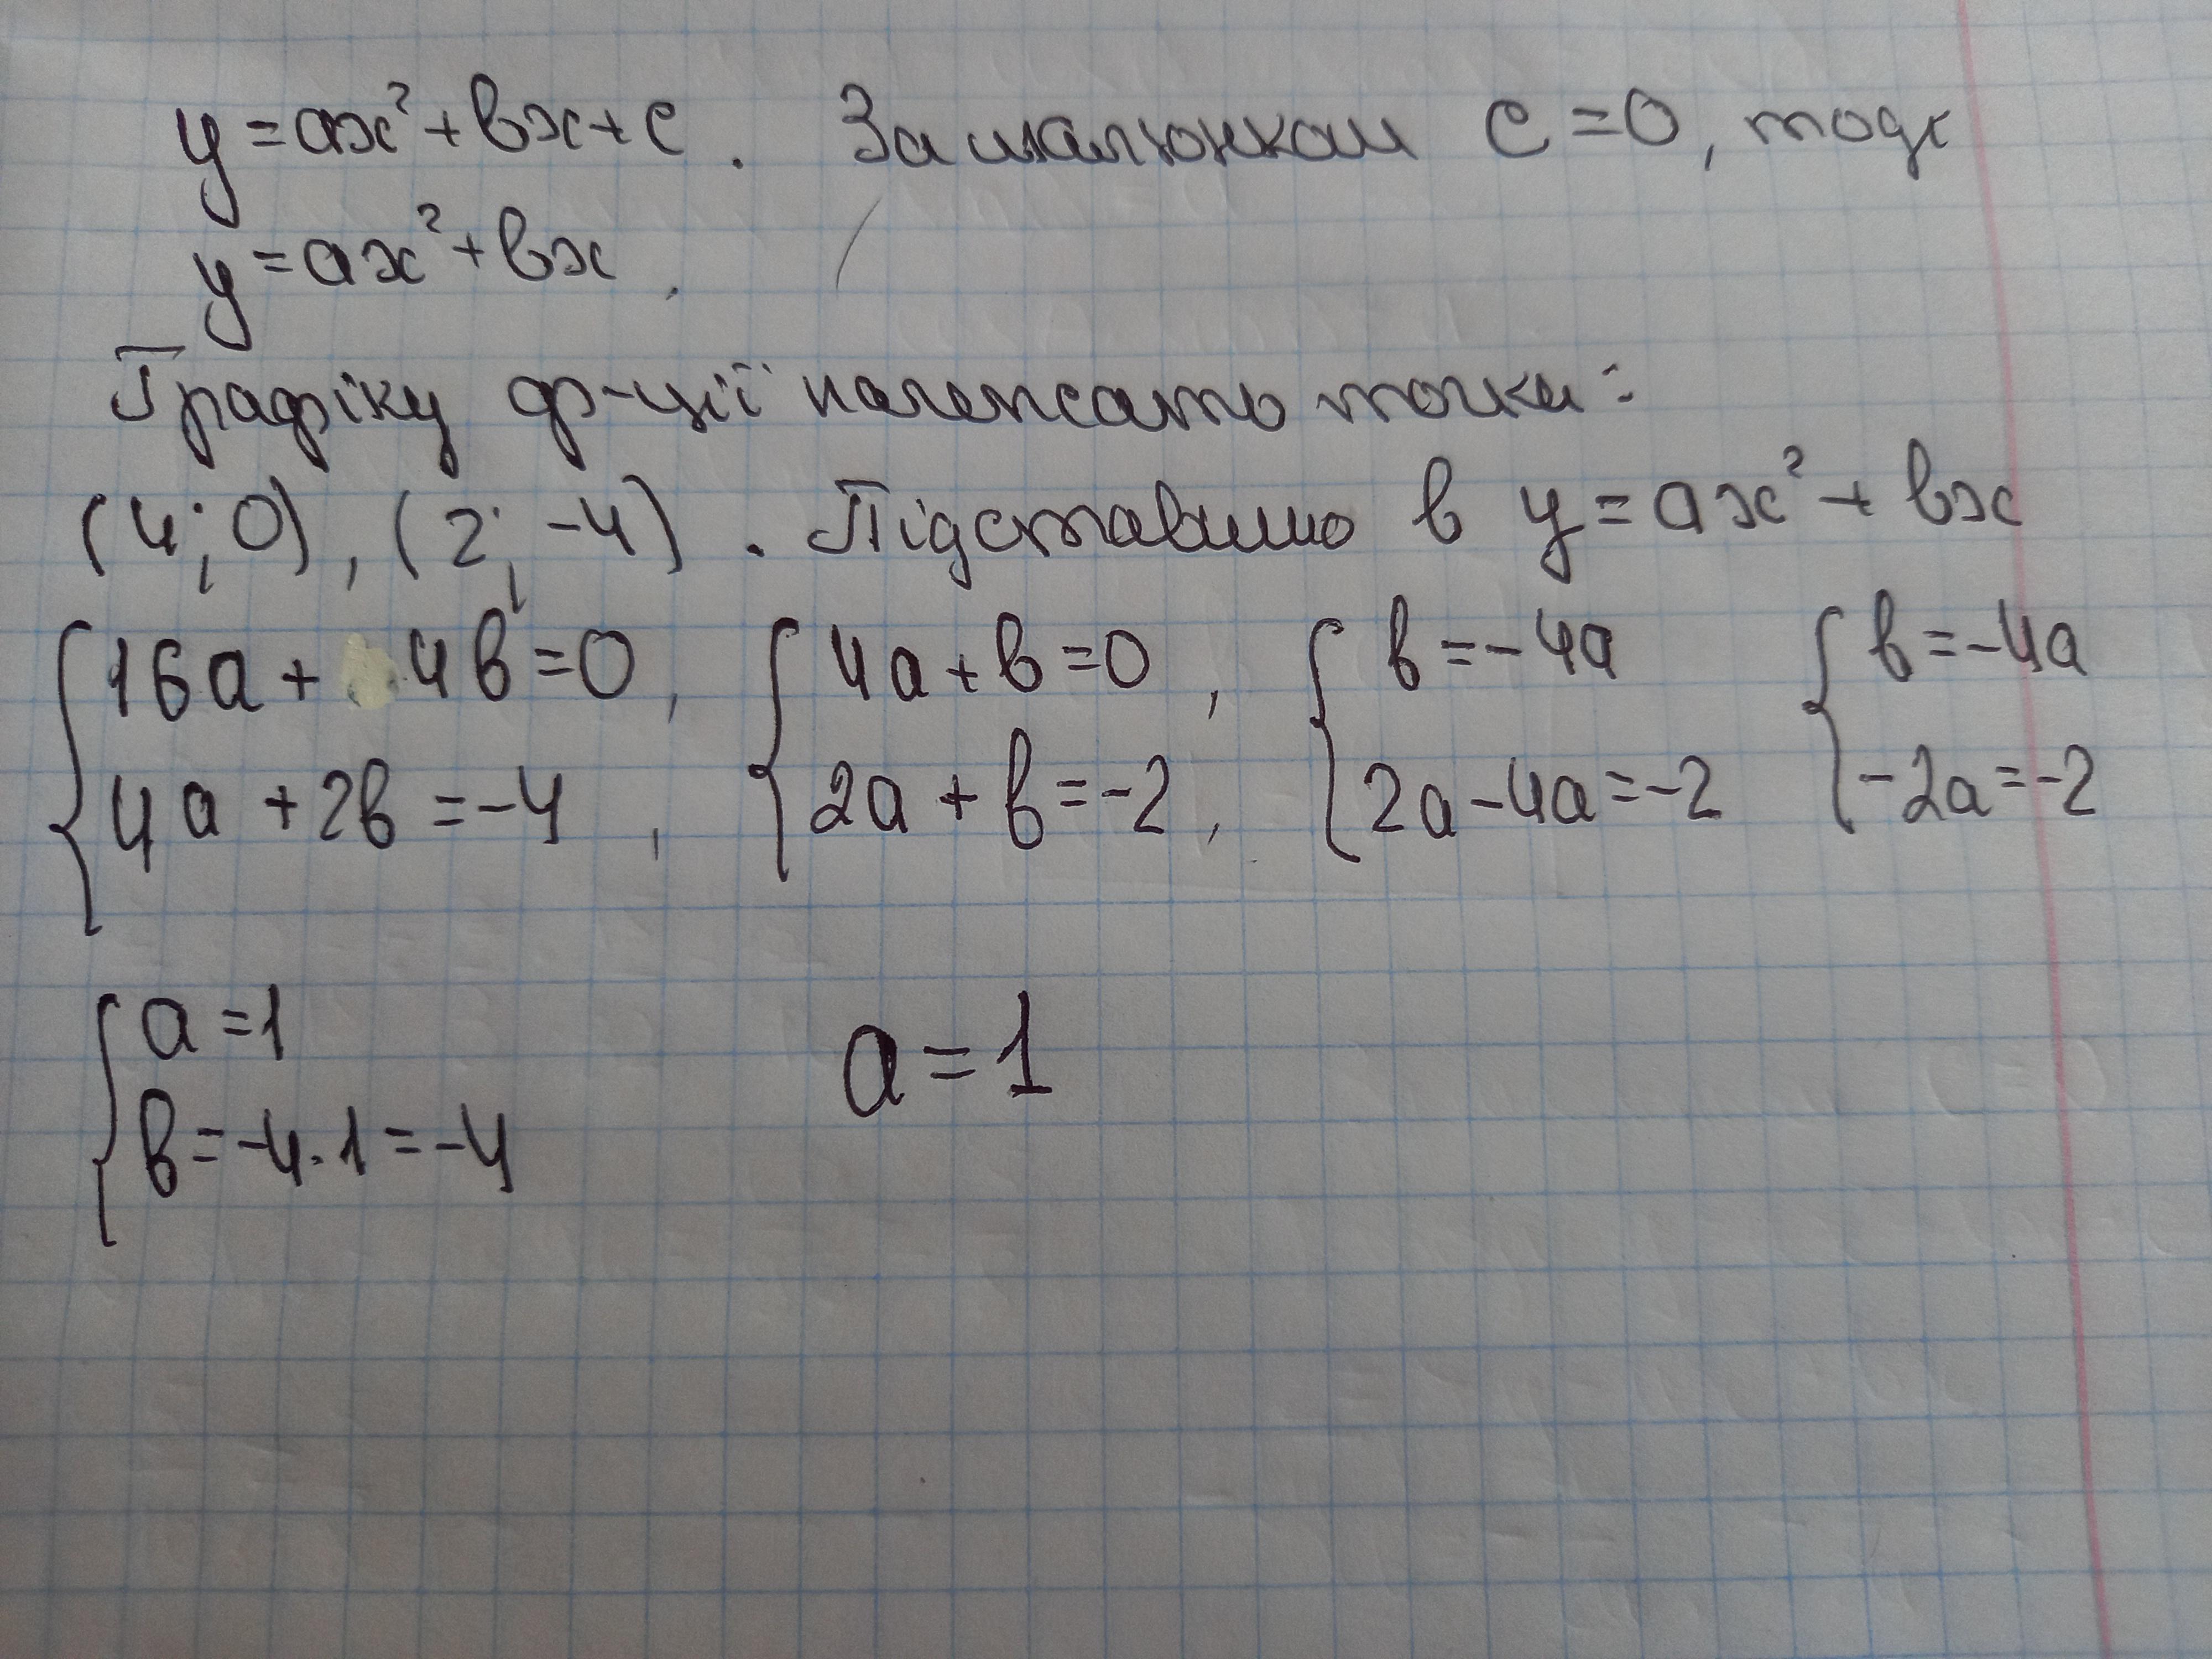 y=ax²+вx+c. За малюнком c=0, тоді
y=ax²+вx.
Графіку ф-ції належать точки:
(4;0), (2;-4). Підставимо в y=ax²+вx
{16a+4в=0, {4a+в=0, {в=-4a {в=-4a
4a+2в=-4, 2a+в=-2, 2a-4a=-2 -2a=-2
{a=1 a=1
в=-4·1=-4